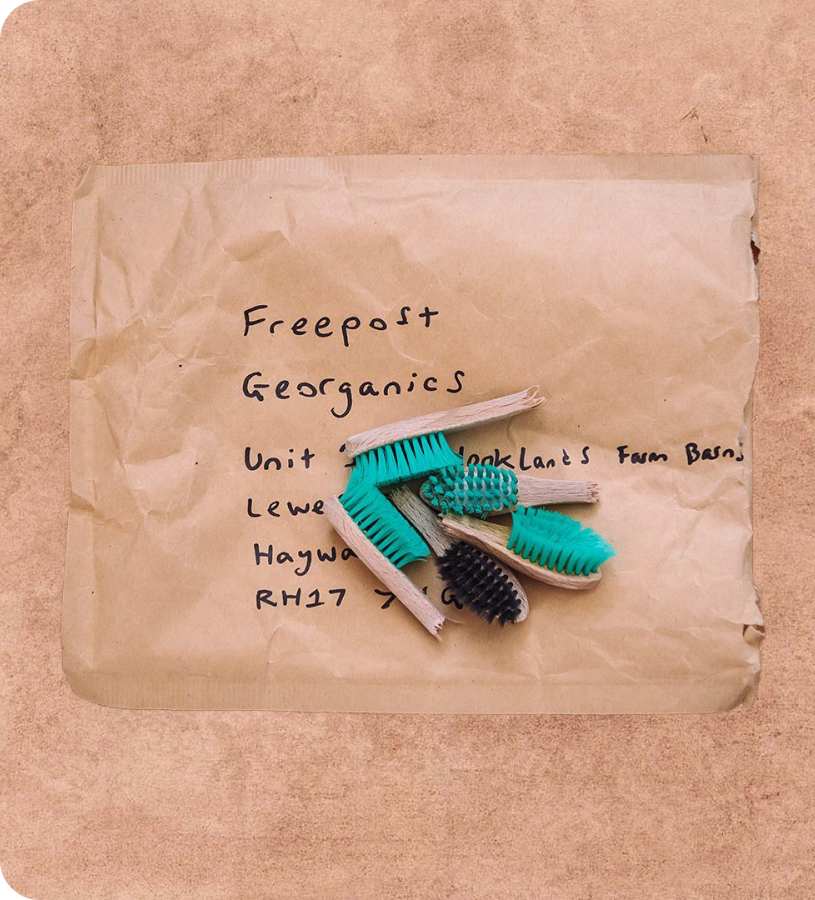 Freepost
Georganics
Unit Farm Barns
Lewe
Haywa
RH17